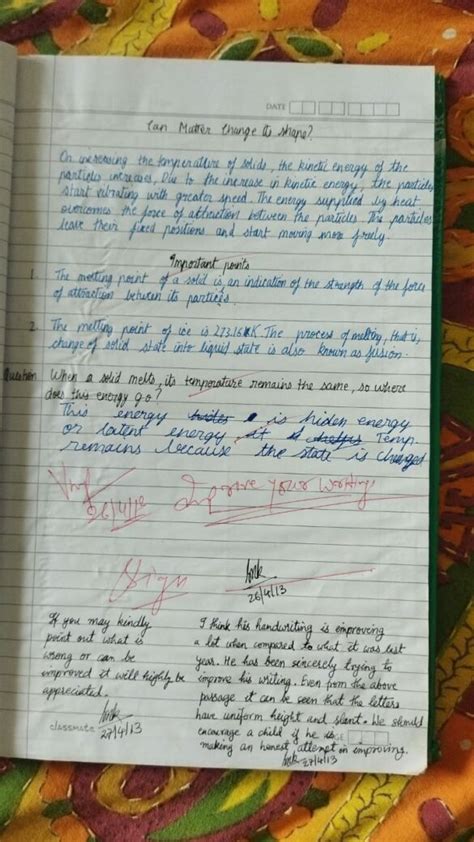 DATE
Can Matter Change its shape?
On increasing the temperature of solids, the kinetic energy of the
particles increases, Due to the increase in kinetic energy, the particles
start vibrating with greater speed. The energy supplied by heat
overcomes the force of attraction between the particles. The particles
leave their fixed positions and start moving more freely.
Important points
1. The melting point of a solid is an indication of the strength of the force
of attraction between its particles.
2. The melting point of ice is 273.16K. The process of melting, that is,
change of solid state into liquid state is also known as fusion.
Question When a solid melts, its temperature remains the same, so where
does this energy go?
This energy is hiden energy
or latent energy, Temp.
remains because the state is changed
26/4/13
Improve your Writing
Sign
26/4/13
If you may kindly
point out what is
wrong or can be
improved it will highly be
appreciated.
27/4/13
I think his handwriting is improving
a lot when compared to what it was last
year. He has been sincerely trying to
improve his writing. Even from the above
passage it can be seen that the letters
have uniform height and slant. We should
encourage a child if he is
making an honest attempt on improving.
27/4/13
classmate
PAGE